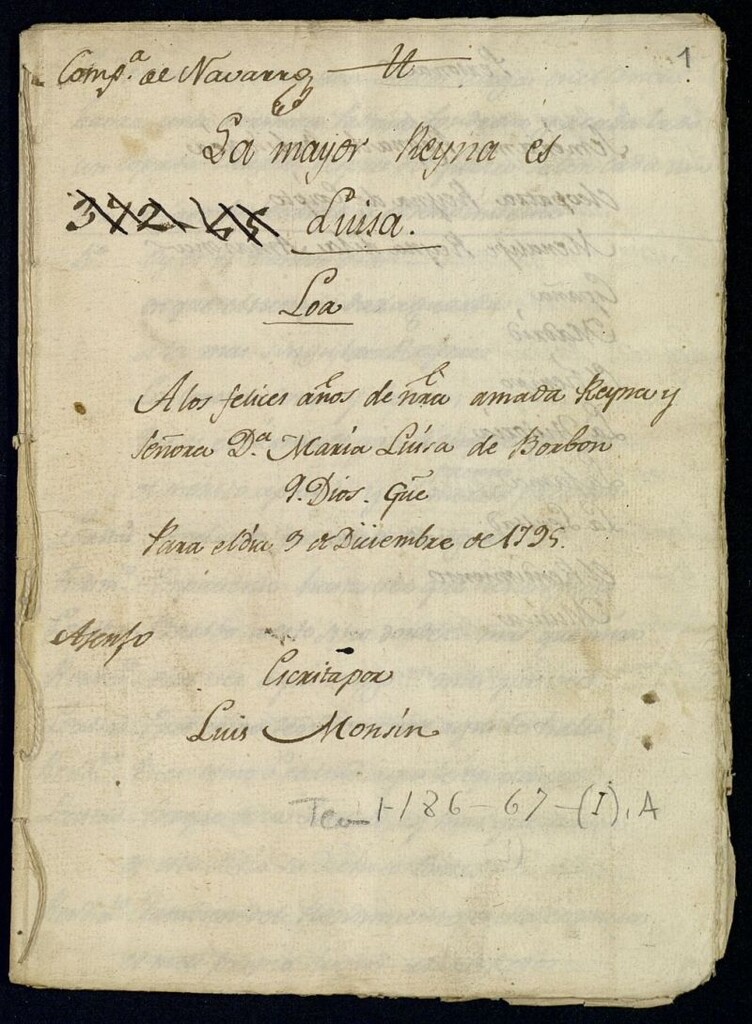 Comp.ª de Navarro
1
La mayor Reyna és
372-65 Luisa.
Loa
A los felices años de nrâ amada Reyna y
Señora D.ª María Luísa de Borbon
q. Dios. gûe
Para el día 9 de Diciembre de 1795.
Asenjo
Escrita por
Luis Monsín
Tea 1-186-67-(I), A